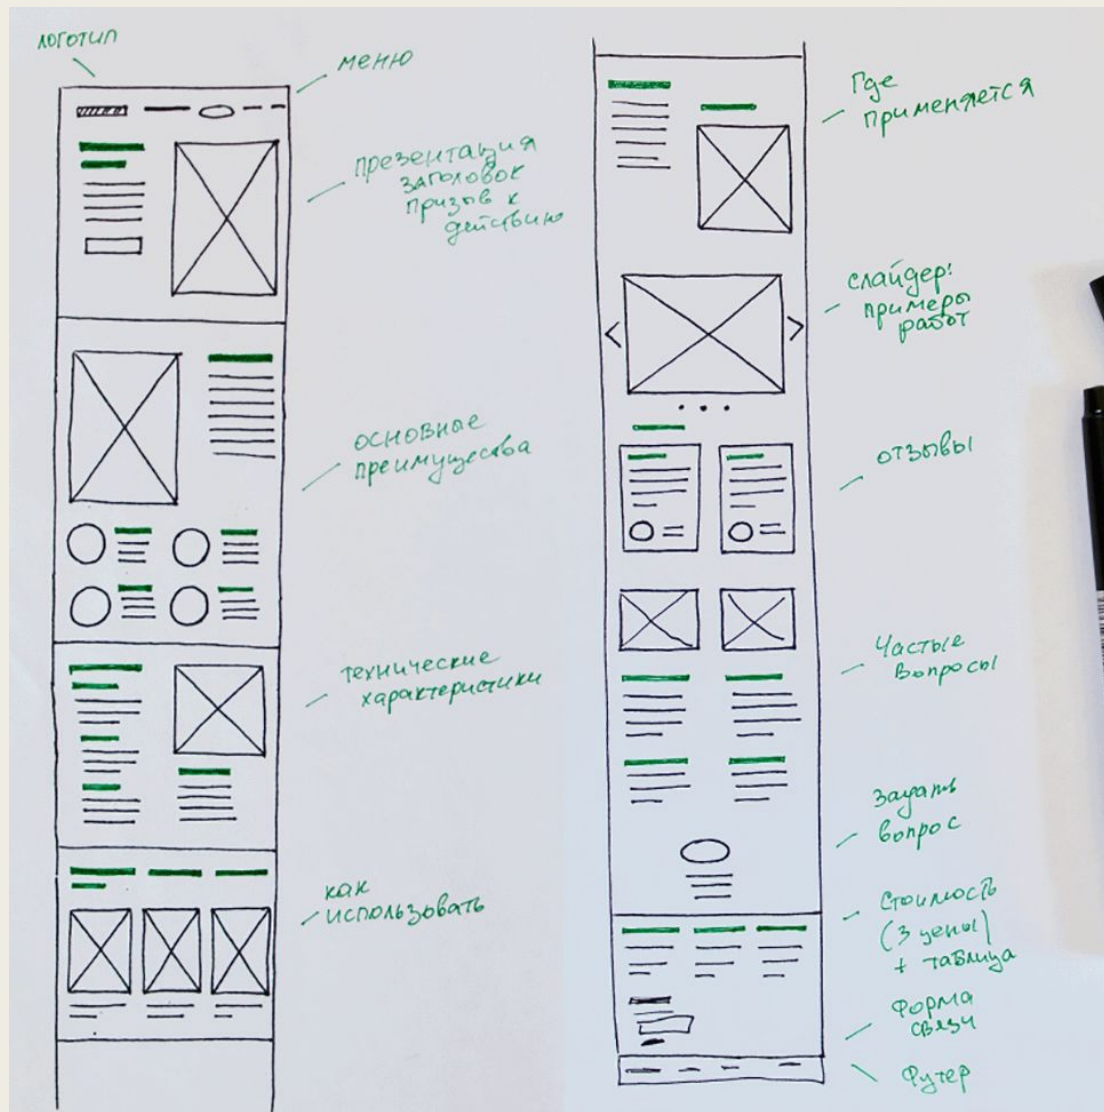 логотип
меню
презентация
заголовок
призыв к
действию
основные
преимущества
технические
характеристики
как
использовать
Где
применяется
слайдер:
примеры
работ
отзывы
Частые
вопросы
Задать
вопрос
Стоимость
(3 цены)
+ таблица
Форма
связи
Футер